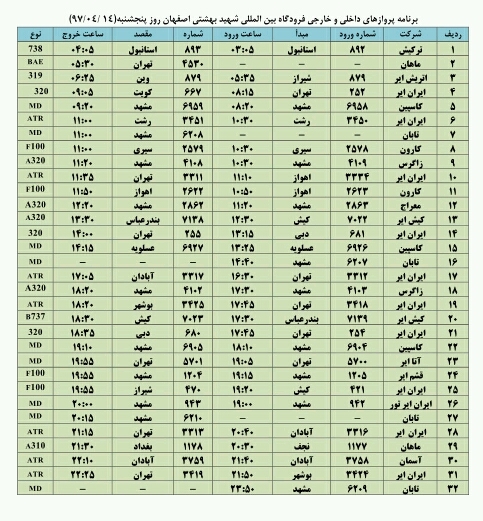 برنامه پروازهای داخلی و خارجی فرودگاه بین المللی شهید بهشتی اصفهان روز پنجشنبه(۹۷/۰۴/۱۴)
ردیف شرکت شماره ورود مبدأ ساعت ورود شماره مقصد ساعت خروج نوع
۱ ترکیش ۸۹۲ استانبول ۰۳:۰۵ ۸۹۳ استانبول ۰۴:۰۵ 738
۲ ماهان – – – ۴۵۳۰ تهران ۰۵:۳۰ BAE
۳ اتریش ایر ۸۷۹ شیراز ۰۵:۳۵ ۸۷۹ وین ۰۶:۲۵ 319
۴ ایران ایر ۲۵۲ تهران ۰۸:۱۵ ۶۶۷ کویت ۰۹:۰۵ 320
۵ کاسپین ۶۹۵۸ مشهد ۰۸:۲۰ ۶۹۵۹ مشهد ۰۹:۲۰ MD
۶ ایران ایر ۳۴۵۰ رشت ۱۰:۳۰ ۳۴۵۱ رشت ۱۱:۰۰ ATR
۷ تابان – – – ۶۲۰۸ مشهد ۱۱:۰۰ MD
۸ کارون ۲۵۷۸ سیری ۱۰:۳۰ ۲۵۷۹ سیری ۱۱:۰۰ F100
۹ زاگرس ۴۱۰۹ مشهد ۱۰:۳۰ ۴۱۰۸ مشهد ۱۱:۲۰ A320
۱۰ ایران ایر ۳۳۳۴ اهواز ۱۱:۱۰ ۳۳۱۱ تهران ۱۱:۳۵ ATR
۱۱ کارون ۲۶۲۳ اهواز ۱۰:۵۰ ۲۶۲۲ اهواز ۱۱:۵۰ F100
۱۲ معراج ۲۸۶۳ مشهد ۱۱:۲۰ ۲۸۶۲ مشهد ۱۲:۲۰ A320
۱۳ کیش ایر ۷۰۲۲ کیش ۱۲:۳۰ ۷۱۳۸ بندرعباس ۱۳:۳۰ A320
۱۴ ایران ایر ۶۸۱ دبی ۱۳:۱۵ ۲۵۵ تهران ۱۴:۰۰ 320
۱۵ کاسپین ۶۹۲۶ عسلویه ۱۳:۲۵ ۶۹۲۷ عسلویه ۱۴:۱۵ MD
۱۶ تابان ۶۲۰۷ مشهد ۱۴:۴۰ – – – MD
۱۷ ایران ایر ۳۳۱۲ تهران ۱۶:۳۰ ۳۳۱۷ آبادان ۱۷:۰۵ ATR
۱۸ زاگرس ۴۱۰۳ مشهد ۱۷:۳۰ ۴۱۰۲ مشهد ۱۸:۲۰ A320
۱۹ ایران ایر ۳۴۱۸ تهران ۱۷:۴۵ ۳۴۲۵ بوشهر ۱۸:۲۰ ATR
۲۰ کیش ایر ۷۱۳۹ بندرعباس ۱۷:۳۰ ۷۰۲۳ کیش ۱۸:۳۰ B737
۲۱ ایران ایر ۲۵۴ تهران ۱۷:۴۵ ۶۸۰ دبی ۱۸:۳۵ 320
۲۲ کاسپین ۶۹۰۴ مشهد ۱۸:۱۰ ۶۹۰۵ مشهد ۱۹:۱۰ MD
۲۳ آتا ایر ۵۷۰۰ تهران ۱۹:۰۵ ۵۷۰۱ تهران ۱۹:۵۵ MD
۲۴ قشم ایر ۱۲۰۵ مشهد ۱۹:۱۵ ۱۲۰۴ مشهد ۱۹:۵۵ F100
۲۵ ایران ایر ۴۲۱ کیش ۱۹:۲۰ ۴۷۰ شیراز ۱۹:۵۵ F100
۲۶ ایران ایر تور ۹۴۲ مشهد ۱۹:۰۰ ۹۴۳ مشهد ۲۰:۰۰ MD
۲۷ تابان – – – ۶۲۱۰ مشهد ۲۰:۱۵ MD
۲۸ ایران ایر ۳۳۱۶ آبادان ۲۰:۴۰ ۳۳۱۳ تهران ۲۱:۱۵ ATR
۲۹ ماهان ۱۱۷۷ نجف ۲۰:۳۰ ۱۱۷۸ بغداد ۲۱:۳۰ A310
۳۰ آسمان ۳۷۵۸ آبادان ۲۱:۴۰ ۳۷۵۹ آبادان ۲۲:۱۰ ATR
۳۱ ایران ایر ۳۴۲۴ بوشهر ۲۱:۵۰ ۳۴۱۹ تهران ۲۲:۲۵ ATR
۳۲ تابان ۶۲۰۹ مشهد ۲۳:۵۰ – – – MD